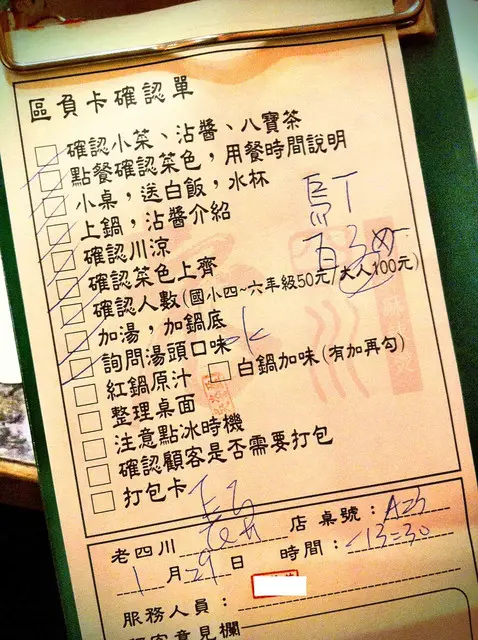 區負卡確認單
確認小菜、沾醬、八寶茶
點餐確認菜色，用餐時間說明
小桌，送白飯，水杯
上鍋，沾醬介紹
確認川涼
確認菜色上齊
確認人數(國小四~六年級50元/大人100元)
加湯，加鍋底
詢問湯頭口味 ok
紅鍋原汁 白鍋加味(有加再勾)
整理桌面
注意點冰時機
確認顧客是否需要打包
打包卡
老四川 店 桌號：A25
1月29日 時間：13:30
服務人員：
顧客意見欄